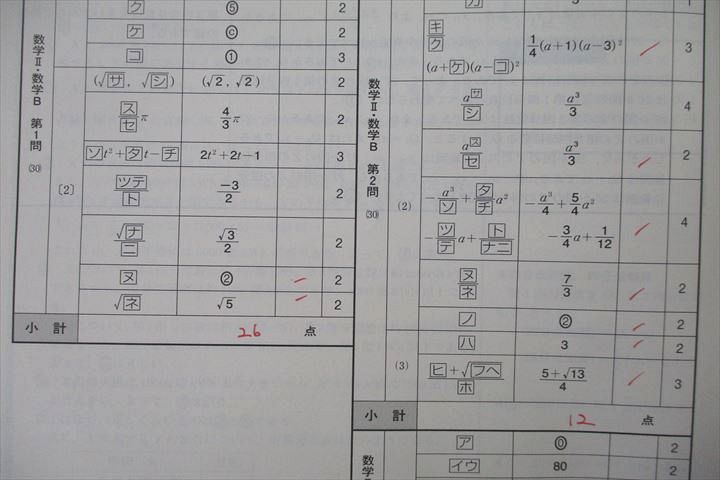 数学Ⅱ・数学B 第1問 (30)
ク ⑤ 2
ケ ⓒ 2
コ ① 3
〔2〕
(√サ, √シ) (√2, √2) 2
ス/セ π 4/3 π 2
ソt²+タt−チ 2t²+2t−1 3
ツテ/ト −3/2 2
√ナ/ニ √3/2 2
ヌ ② 2
√ネ √5 2
小計 26 点
数学Ⅱ・数学B 第2問 (30)
キ/ク (a+ケ)(a−コ)² 1/4(a+1)(a−3)² 3
a^サ/シ a³/3 4
a^ス/セ a³/3 2
(2)
−a³/ソ+タ/チ a² −a³/4+5/4 a² 4
−ツ/テ a+ト/ナニ −3/4 a+1/12
ヌ/ネ 7/3 2
ノ ② 2
(3)
ハ 3 2
ヒ+√フヘ/ホ 5+√13/4 3
小計 12 点
数学
ア ⓪ 2
イウ 80 2